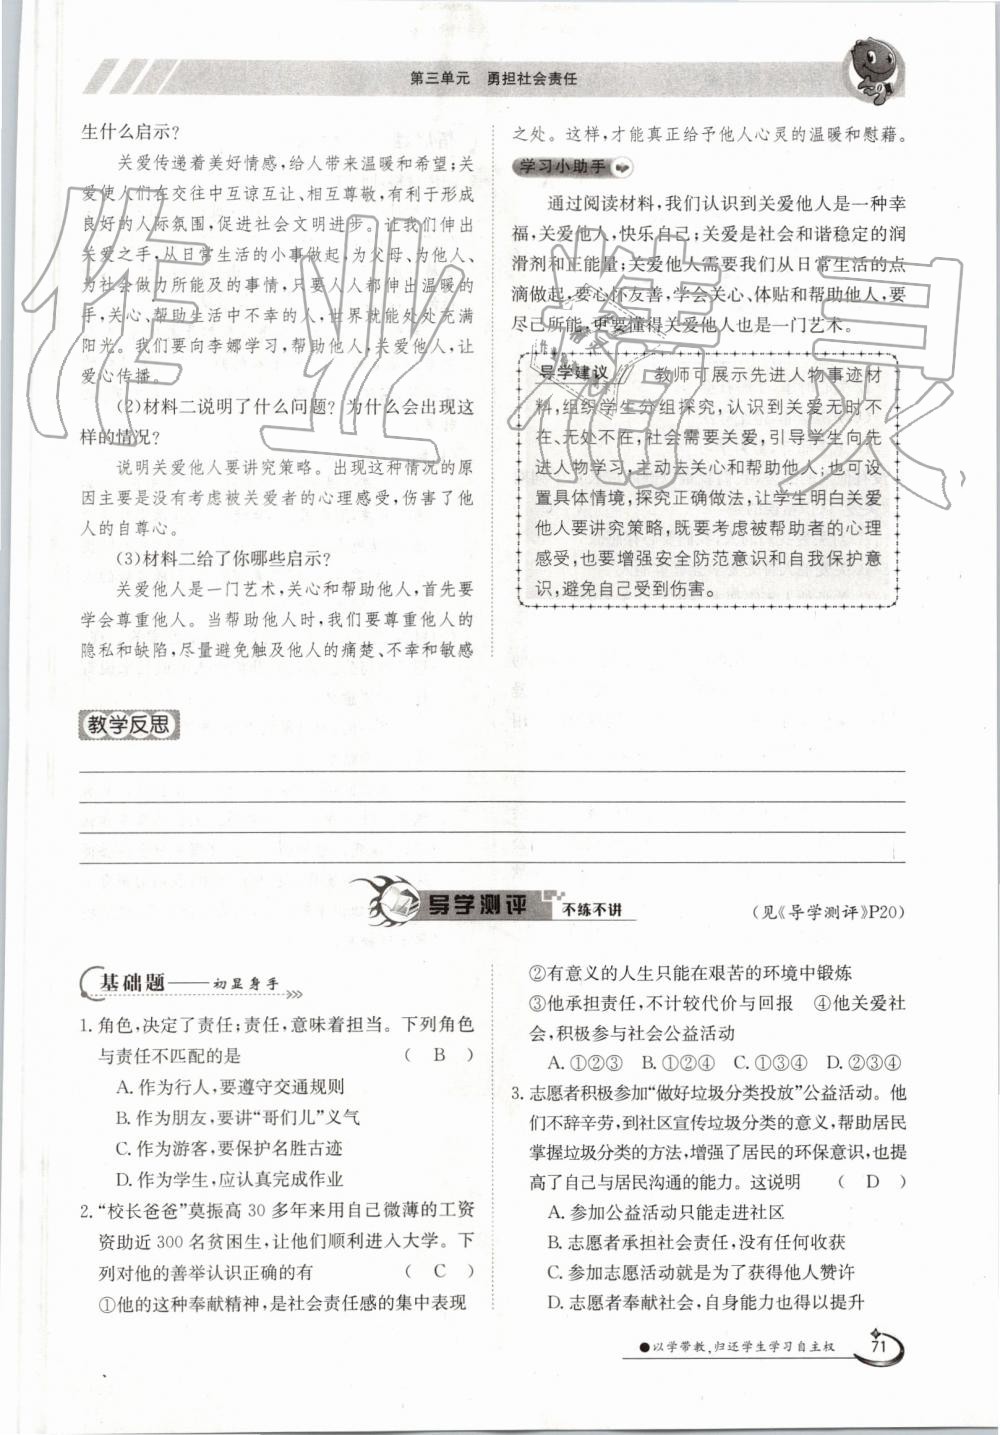 第三单元　勇担社会责任
生什么启示?
关爱传递着美好情感,给人带来温暖和希望;关
爱使人们在交往中互谅互让、相互尊敬,有利于形成
良好的人际氛围,促进社会文明进步。让我们伸出
关爱之手,从日常生活的小事做起,为父母、为他人、
为社会做力所能及的事情,只要人人都伸出温暖的
手,关心、帮助生活中不幸的人,世界就能处处充满
阳光。我们要向李娜学习,帮助他人,关爱他人,让
爱心传播。
(2)材料二说明了什么问题? 为什么会出现这
样的情况?
说明关爱他人要讲究策略。出现这种情况的原
因主要是没有考虑被关爱者的心理感受,伤害了他
人的自尊心。
(3)材料二给了你哪些启示?
关爱他人是一门艺术,关心和帮助他人,首先要
学会尊重他人。当帮助他人时,我们要尊重他人的
隐私和缺陷,尽量避免触及他人的痛楚、不幸和敏感
之处。这样,才能真正给予他人心灵的温暖和慰藉。
学习小助手
通过阅读材料,我们认识到关爱他人是一种幸
福,关爱他人,快乐自己;关爱是社会和谐稳定的润
滑剂和正能量;关爱他人需要我们从日常生活的点
滴做起,要心怀友善,学会关心、体贴和帮助他人,要
尽己所能,更要懂得关爱他人也是一门艺术。
导学建议　教师可展示先进人物事迹材
料,组织学生分组探究,认识到关爱无时不
在、无处不在,社会需要关爱,引导学生向先
进人物学习,主动去关心和帮助他人;也可设
置具体情境,探究正确做法,让学生明白关爱
他人要讲究策略,既要考虑被帮助者的心理
感受,也要增强安全防范意识和自我保护意
识,避免自己受到伤害。
作业精灵
教学反思
导学测评 不练不讲
(见《导学测评》P20)
基础题——初显身手
1. 角色,决定了责任;责任,意味着担当。下列角色
与责任不匹配的是 ( B )
A. 作为行人,要遵守交通规则
B. 作为朋友,要讲“哥们儿”义气
C. 作为游客,要保护名胜古迹
D. 作为学生,应认真完成作业
2. “校长爸爸”莫振高 30 多年来用自己微薄的工资
资助近 300 名贫困生,让他们顺利进入大学。下
列对他的善举认识正确的有 ( C )
①他的这种奉献精神,是社会责任感的集中表现
②有意义的人生只能在艰苦的环境中锻炼
③他承担责任,不计较代价与回报　④他关爱社
会,积极参与社会公益活动
A. ①②③　B. ①②④　C. ①③④　D. ②③④
3. 志愿者积极参加“做好垃圾分类投放”公益活动。他
们不辞辛劳,到社区宣传垃圾分类的意义,帮助居民
掌握垃圾分类的方法,增强了居民的环保意识,也提
高了自己与居民沟通的能力。这说明 ( D )
A. 参加公益活动只能走进社区
B. 志愿者承担社会责任,没有任何收获
C. 参加志愿活动就是为了获得他人赞许
D. 志愿者奉献社会,自身能力也得以提升
●以学带教,归还学生学习自主权
71